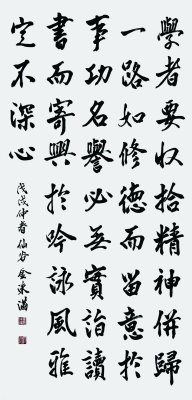 學者要收拾精神併歸
一路如修德而留意於
事功名譽必無實詣讀
書而寄興於吟詠風雅
定不深心
戊戌仲春 仙谷 金東滿